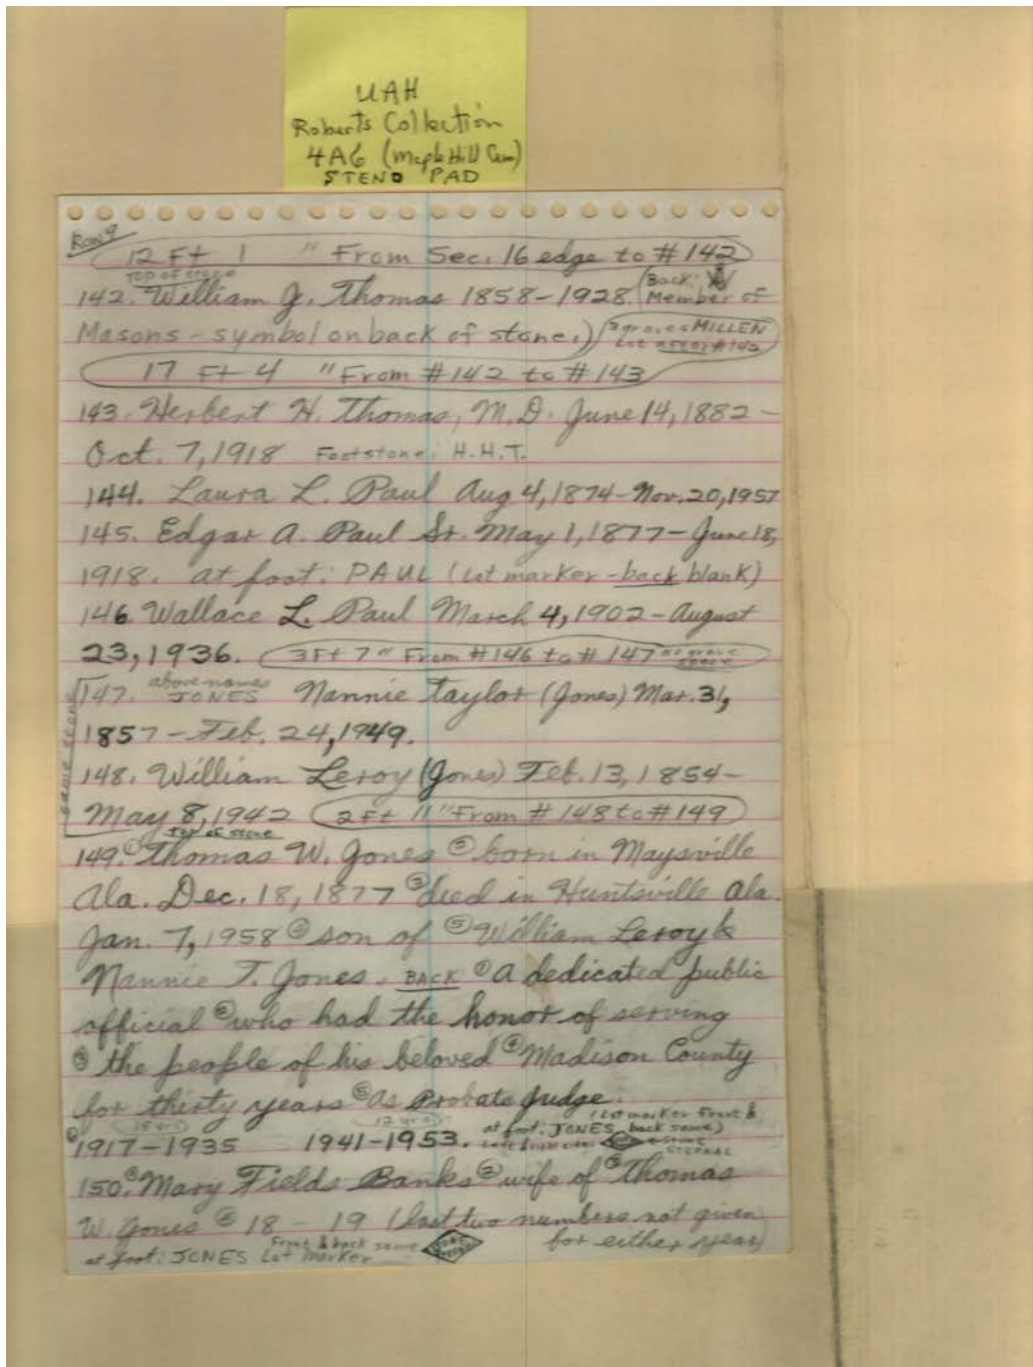 UAH
Roberts Collection
4A6 (Maple Hill Cem)
STENO PAD
Row 9
12 Ft 1 " From Sec. 16 edge to #142
top of stone
142. William J. Thomas 1858-1928. (Back:
Member of
Masons - symbol on back of stone.)
graves MILLEN
Lot #142
17 Ft 4 "From #142 to #143
143. Herbert H. Thomas, M.D. June 14, 1882 -
Oct. 7, 1918 Footstone: H.H.T.
144. Laura L. Paul Aug 4, 1874 - Nov. 20, 1957
145. Edgar A. Paul Sr. May 1, 1877 - June 18,
1918. at foot: PAUL (Lot marker - back blank)
146 Wallace L. Paul March 4, 1902 - August
23, 1936. 3 Ft 7" From #146 to #147 no grave space
same stone
above names
147. JONES Nannie Taylor (Jones) Mar. 31,
1857 - Feb. 24, 1949.
148. William Leroy (Jones) Feb. 13, 1854 -
May 8, 1942 2 Ft 11 "From #148 to #149
top of stone
149. ① Thomas W. Jones ② born in Maysville
Ala. Dec. 18, 1877 ③ died in Huntsville Ala.
Jan. 7, 1958 ④ son of ⑤ William Leroy &
Nannie T. Jones. BACK ① A dedicated public
official ② who had the honor of serving
③ the people of his beloved ④ Madison County
for thirty years ⑤ As Probate Judge.
18 yrs 12 yrs
(Lot marker Front &
at foot: JONES back same)
⑥ 1917-1935 1941-1953.
ETERNAL
150. ① Mary Fields Banks ② wife of ③ Thomas
W. Jones ④ 18 - 19 (last two numbers not given
for either year)
Front & back same
at foot: JONES Lot Marker